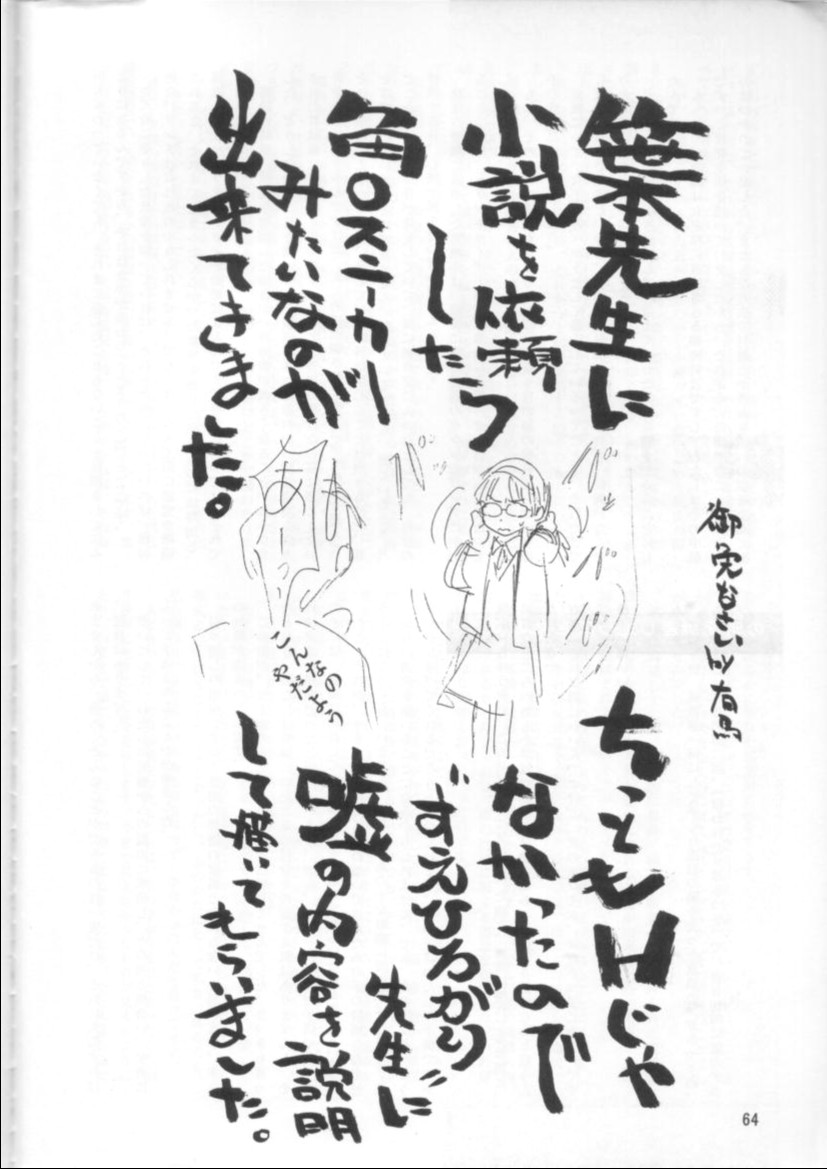 笹本先生に
小説を依頼
したら
角○スニーカー
みたいなのが
出来てきました。
御免なさい by 有馬
あぁ
こんなの
やだよぅ
ちっともHじゃ
なかったので
"すえひろがり"
先生に
嘘の内容を説明
して描いて
もらいました。
64